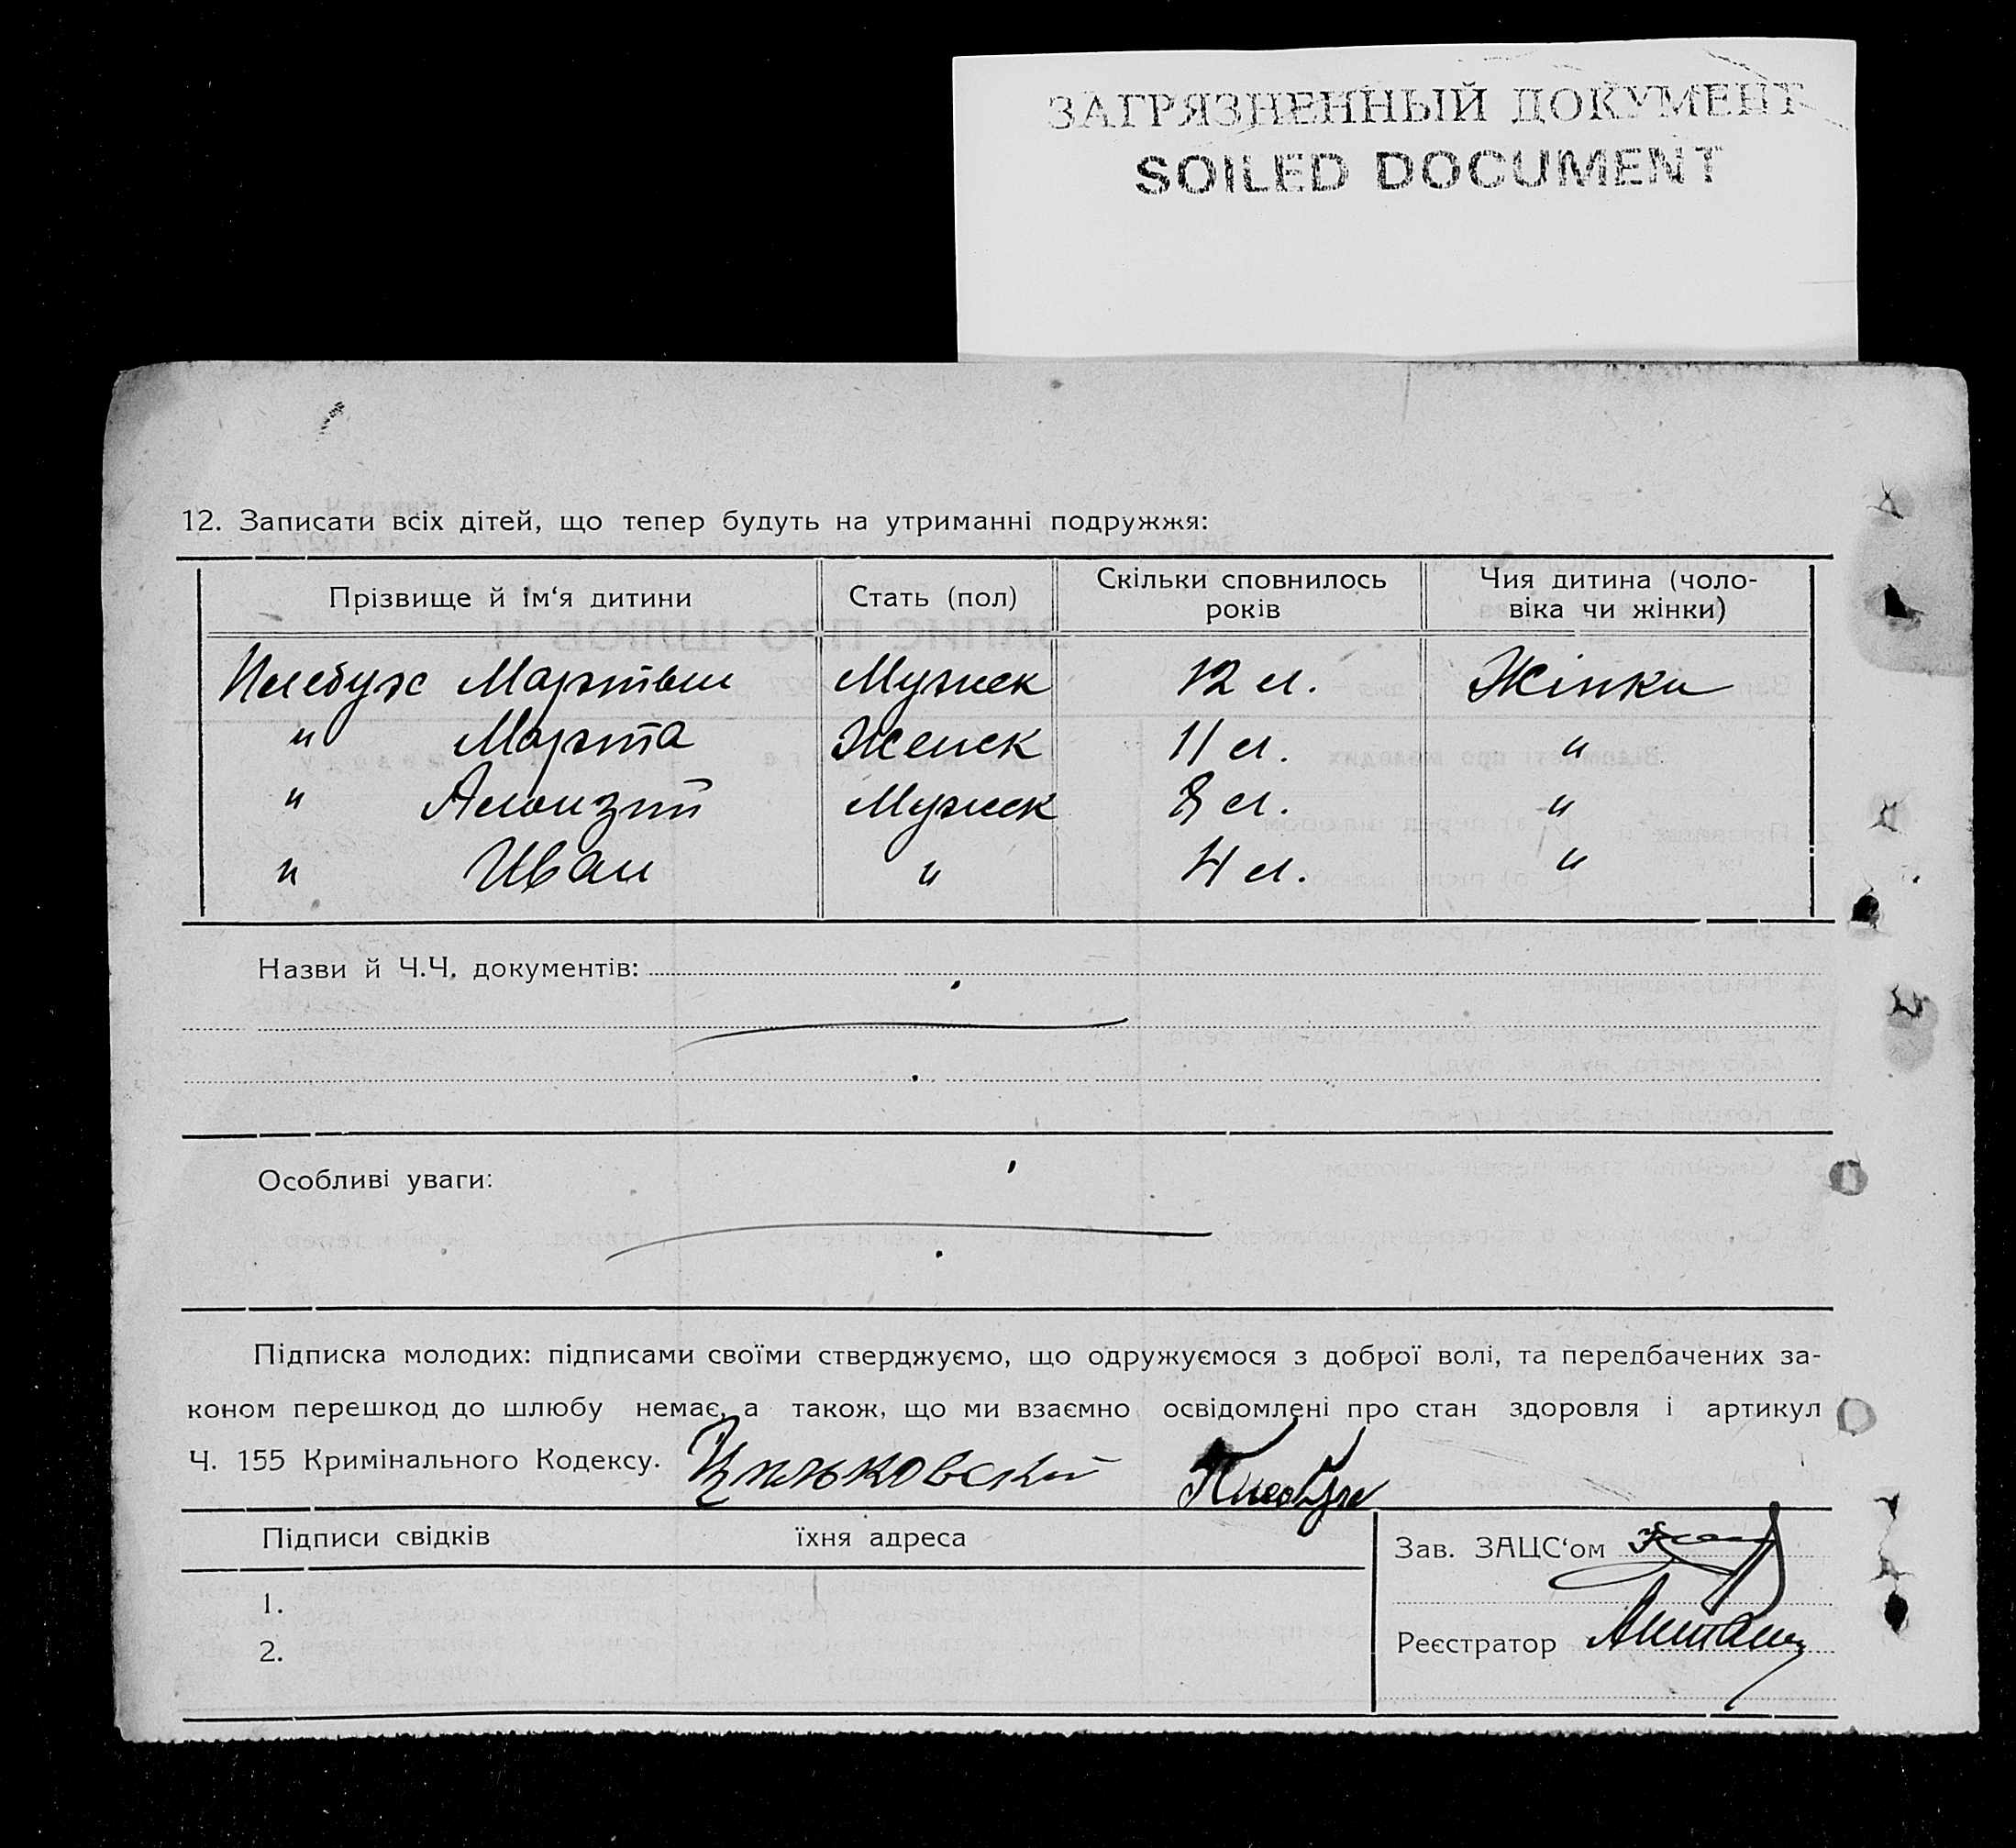 ЗАГРЯЗНЕННЫЙ ДОКУМЕНТ
SOILED DOCUMENT
12. Записати всіх дітей, що тепер будуть на утриманні подружжя:
Прізвище й ім‘я дитини Стать (пол) Скільки сповнилось років Чия дитина (чоловіка чи жінки)
Мартын Мужск 12 л. Жінки
" Марта Женск 11 л. "
" Мужск 8 л. "
" Иван " 4 л. "
Назви й Ч.Ч. документів:
Особливі уваги:
Підписка молодих: підписами своїми стверджуємо, що одружуємося з доброї волі, та передбачених за-
коном перешкод до шлюбу немає, а також, що ми взаємно освідомлені про стан здоровля і артикул
Ч. 155 Кримінального Кодексу.
Підписи свідків їхня адреса
Зав. ЗАЦС‘ом
1.
Реєстратор
2.